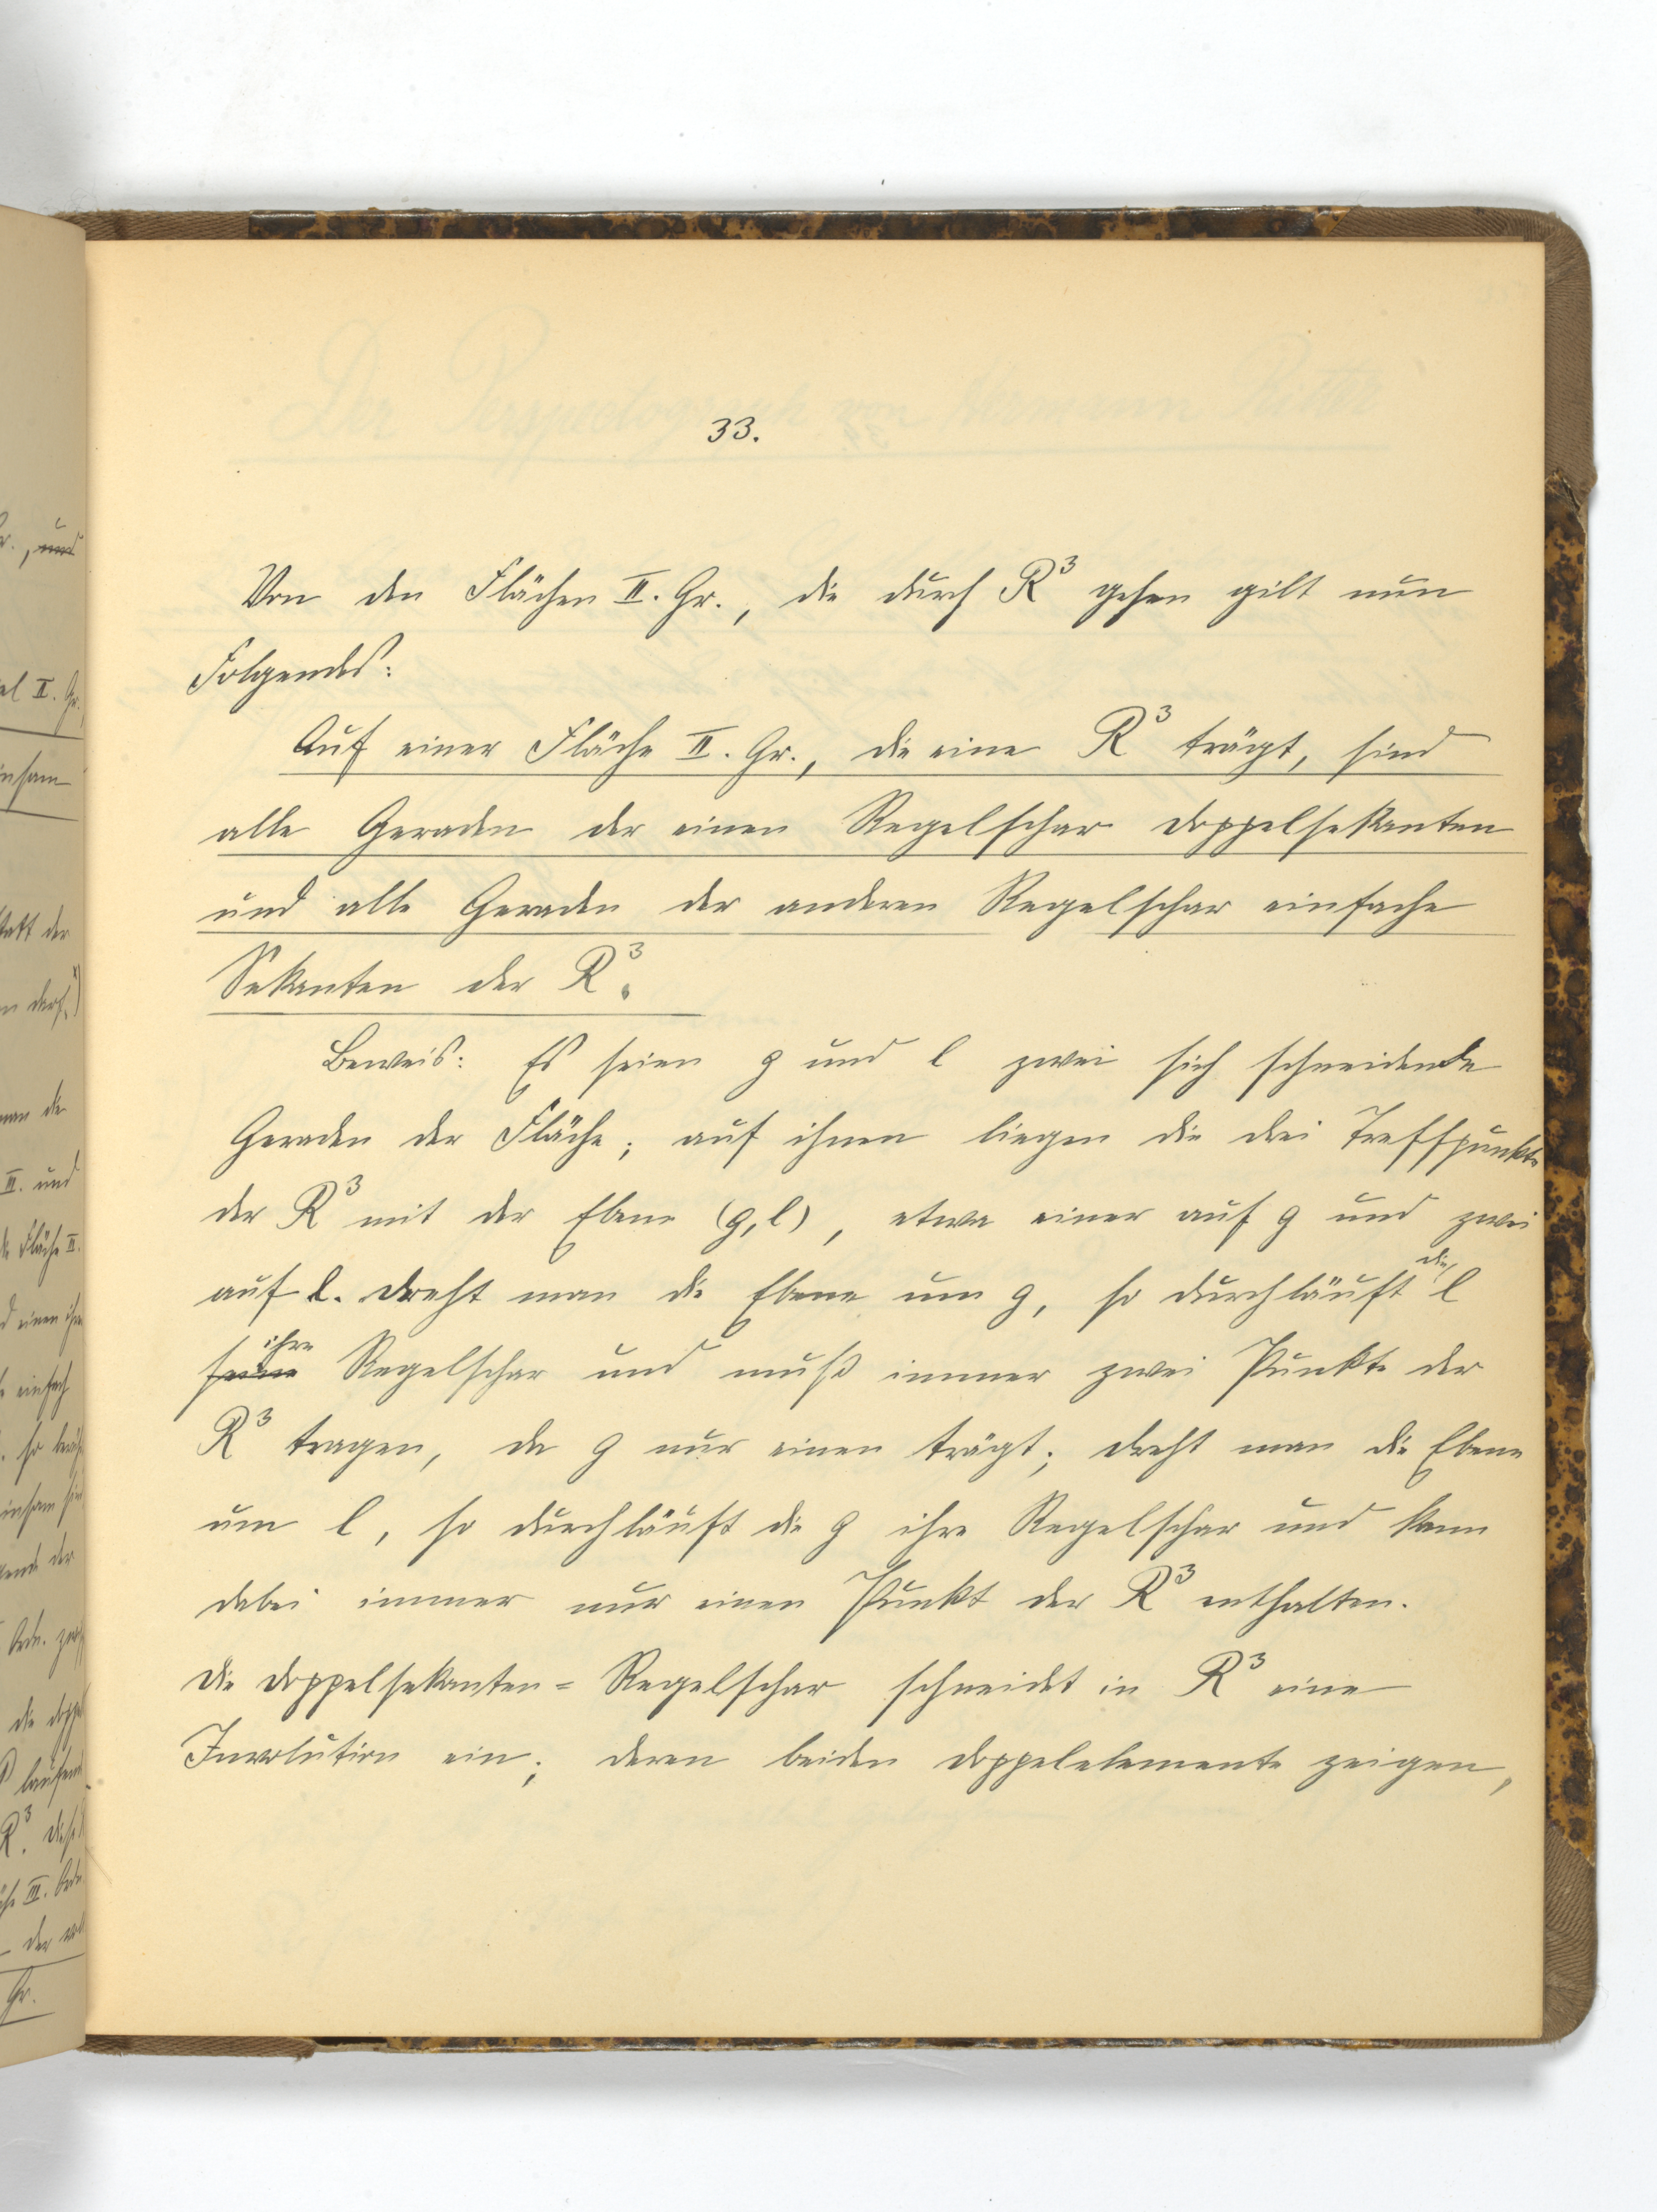 33.
Von den Flächen II. Gr., die durch R³ gehen gilt nun
Folgendes:
Auf einer Fläche II. Gr., die eine R³ trägt, sind
alle Geraden der einen Regelschar Doppelsekanten
und alle Geraden der anderen Regelschar einfache
Sekanten der R³.
Beweis: Es seien g und l zwei sich schneidende
Geraden der Fläche; auf ihnen liegen die drei Treffpunkte
der R³ mit der Ebene (g, l), etwa einer auf g und zwei
auf l. Dreht man die Ebene um g, so durchläuft die l
seine ihre Regelschar und muß immer zwei Punkte der
R³ tragen, da g nur einen trägt; dreht man die Ebene
um l, so durchläuft die g ihre Regelschar und kann
dabei immer nur einen Punkt der R³ enthalten.
Die Doppelsekanten-Regelschar schneidet in R³ eine
Involution ein; deren beiden Doppelelemente zeigen,